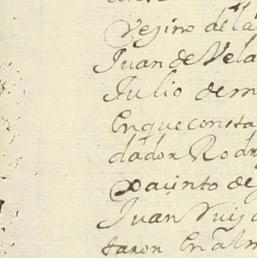 Vezino de la
Juan de Vela
Julio de m
En que consta
dador Rodr
Xacinto de
Juan Ruiz
taron En alm